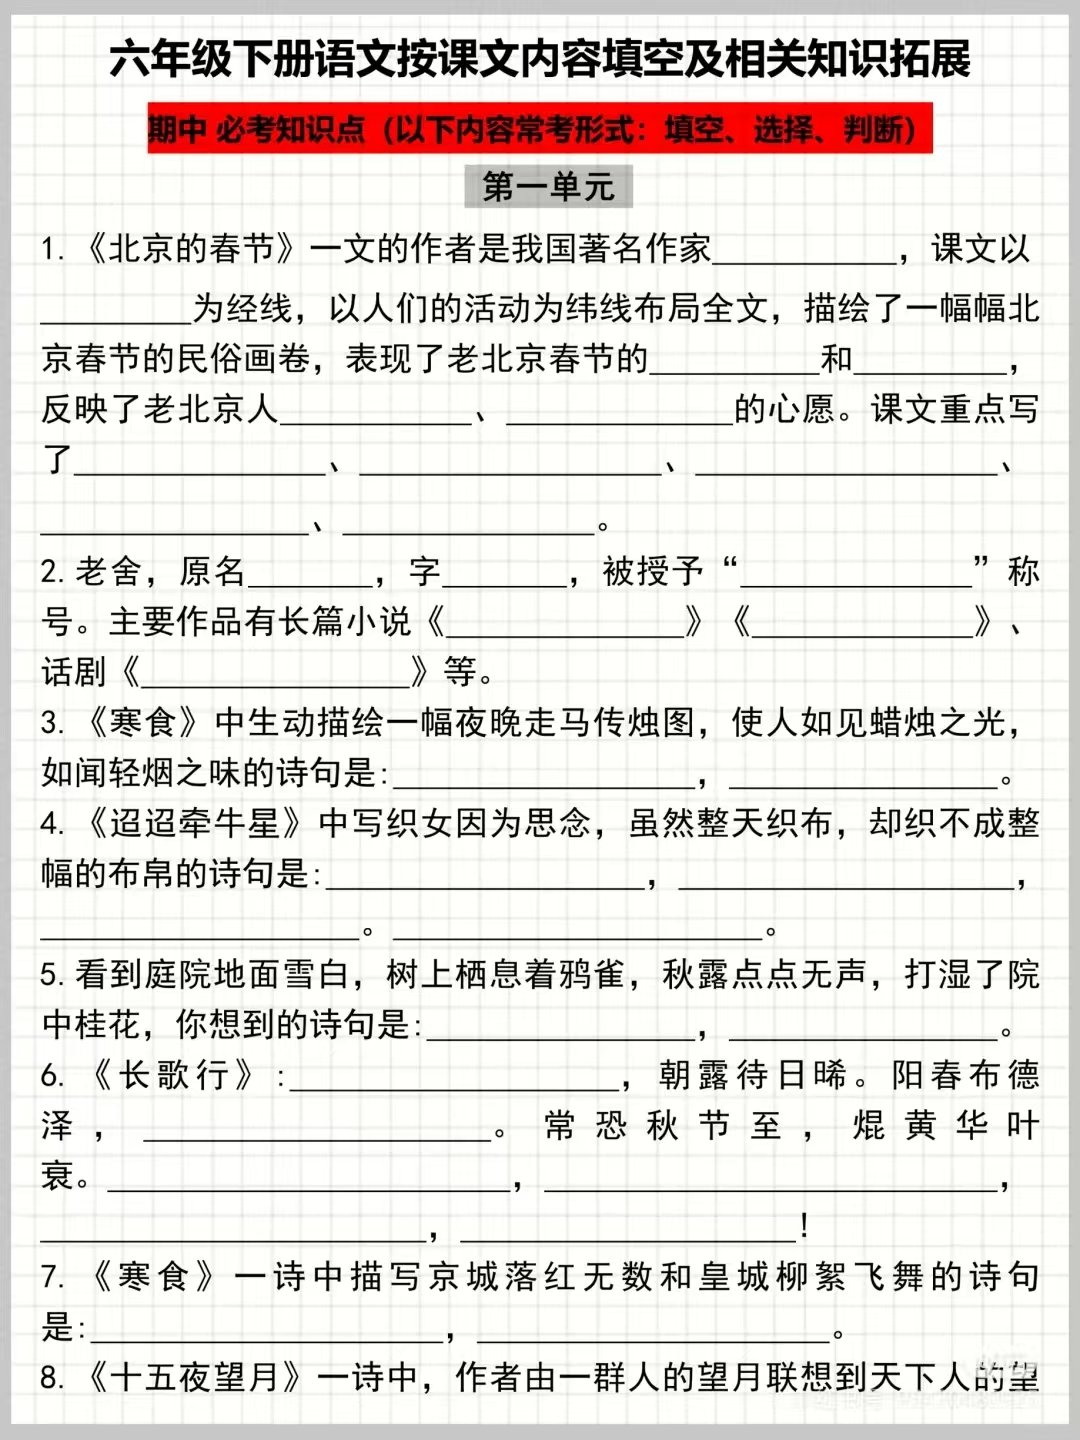 六年级下册语文按课文内容填空及相关知识拓展
期中 必考知识点（以下内容常考形式：填空、选择、判断）
第一单元
1.《北京的春节》一文的作者是我国著名作家___________，课文以
_________为经线，以人们的活动为纬线布局全文，描绘了一幅幅北
京春节的民俗画卷，表现了老北京春节的__________和_________，
反映了老北京人___________、_____________的心愿。课文重点写
了_______________、__________________、__________________、
________________、_______________。
2.老舍，原名_______，字_______，被授予“______________”称
号。主要作品有长篇小说《______________》《_____________》、
话剧《________________》等。
3.《寒食》中生动描绘一幅夜晚走马传烛图，使人如见蜡烛之光，
如闻轻烟之味的诗句是:__________________，________________。
4.《迢迢牵牛星》中写织女因为思念，虽然整天织布，却织不成整
幅的布帛的诗句是:___________________，____________________，
___________________。______________________。
5.看到庭院地面雪白，树上栖息着鸦雀，秋露点点无声，打湿了院
中桂花，你想到的诗句是:________________，________________。
6.《长歌行》:____________________，朝露待日晞。阳春布德
泽，_____________________。常恐秋节至，焜黄华叶
衰。________________________，___________________________，
_______________________，____________________！
7.《寒食》一诗中描写京城落红无数和皇城柳絮飞舞的诗句
是:_____________________，_____________________。
8.《十五夜望月》一诗中，作者由一群人的望月联想到天下人的望